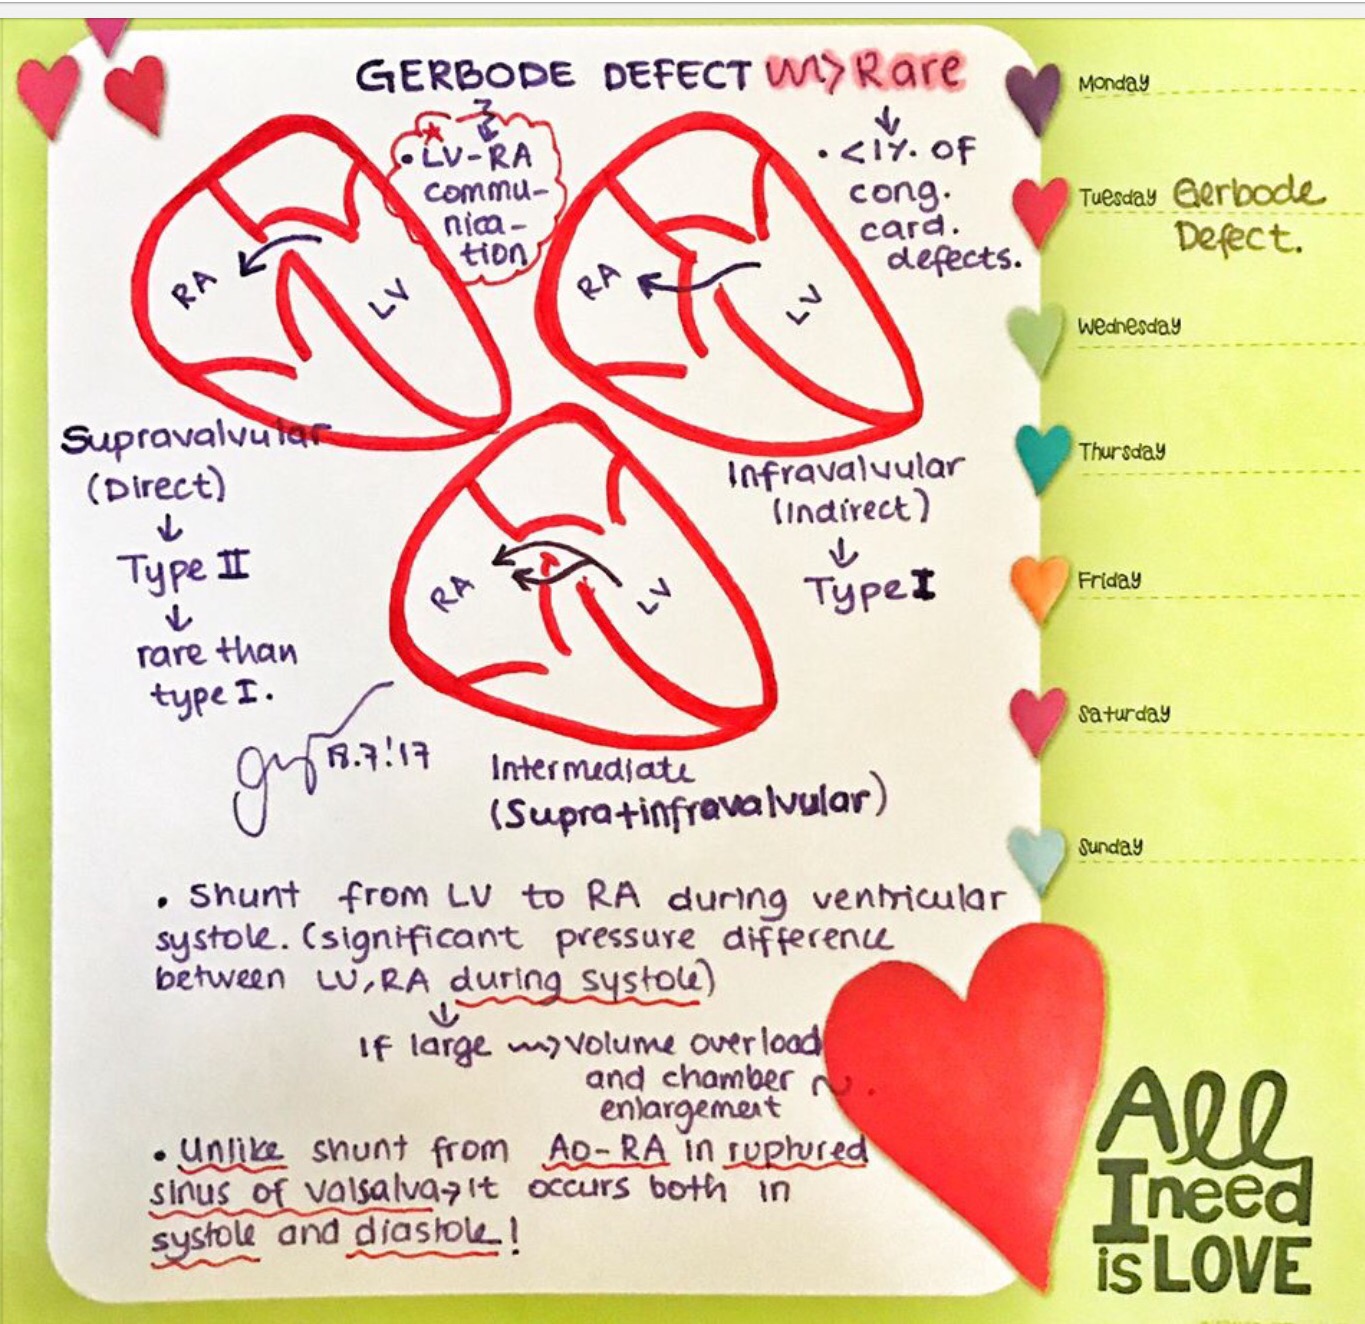 GERBODE DEFECT Rare
• LV-RA
commu-
nica-
tion
• <1% OF
cong.
card.
defects.
RA
LV
RA
LV
Supravalvular
(Direct)
Type II
rare than
type I.
Infravalvular
(Indirect)
Type I
RA
LV
Intermediate
(Supra+infravalvular)
.7!'17
• Shunt from LV to RA during ventricular
systole. (significant pressure difference
between LV, RA during systole)
If large → volume overload
and chamber
enlargement
• Unlike shunt from Ao-RA in ruptured
sinus of valsalva → it occurs both in
systole and diastole!
Monday
Tuesday Gerbode
Defect.
Wednesday
Thursday
Friday
Saturday
Sunday
All
I need
is LOVE